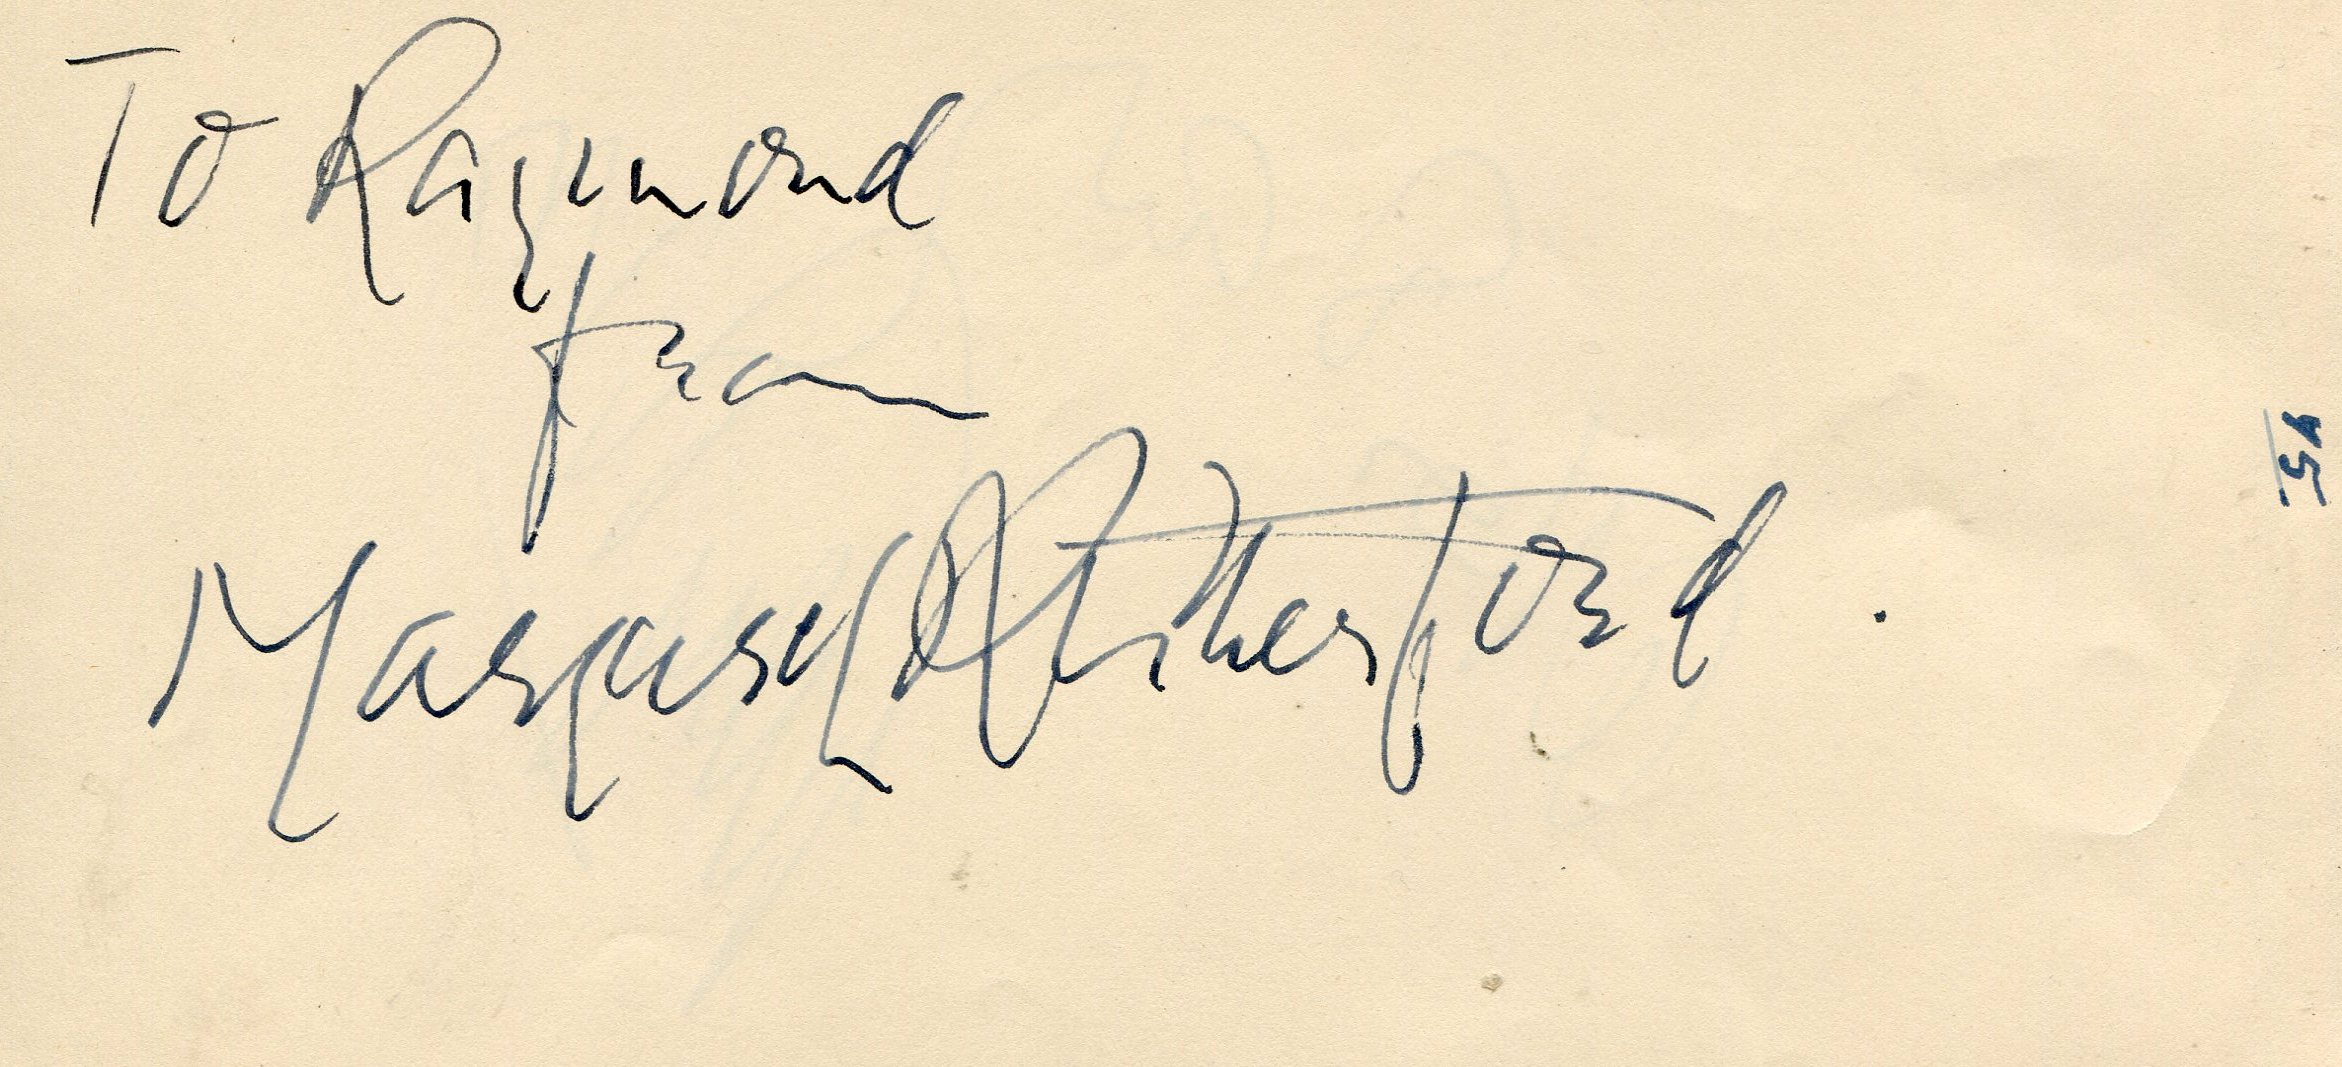 To Raymond
from
Margaret Rutherford.